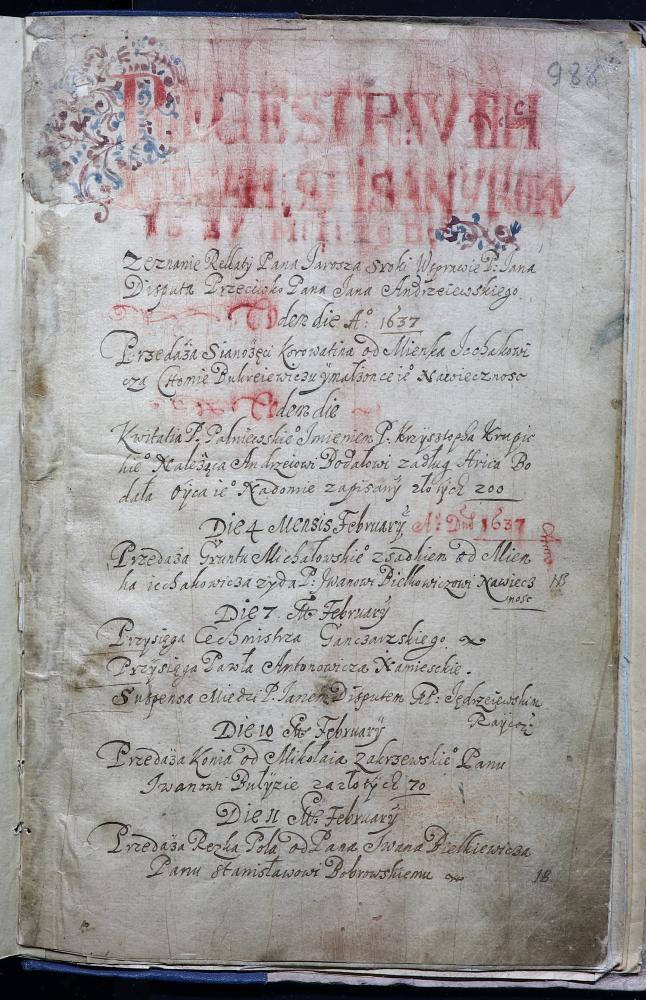 988
REGESTRVM
Zeznanie Rellaty Pana Jarosza Sroki Wsprawie P: Jana
Disputa Przeciwko Pana Jana Andrzeiewskiego
Eodem die A° 1637
Przedaża Sianożęci Korowatina od Mienka Icchakowi
cza Chomie Bukreiewiczu y małzonce ie° Nawiecznosc
Eodem die
Kwitatia P. Palniewskie° Imieniem P. Krzysztopha Krupic
kie° Należąca Andrzeiowi Bodałowi zadług Hrica Bo
dała Oyca ie° Nadomie zapisany złotych 200
Die 4 Mensis February A° Dni 1637
Przedaza Gruntu Michałowskie° zsadkiem od Mien
ka icchakowicza zyda P: Iwanowi Bielkowiczowi Nawiecz
nosc
NB
Die 7 February
Przysięga Cechmistrza Ganczarzskiego
Przysięga Pawła Antonowicza Namieskie.
Suspensa Miedzi P. Janem Disputem AP: Jędrzeiewskim
Raycą
Die 10 February
Przedaża Konia od Mikołaia Zakrzewskie° Panu
Iwanowi Bułyzie zazłotych 70
Die 11 February
Przedaża Rezka Pola od Pana Iwana Bielkiewicza
Panu Stanisławowi Bobrowskiemu
NB